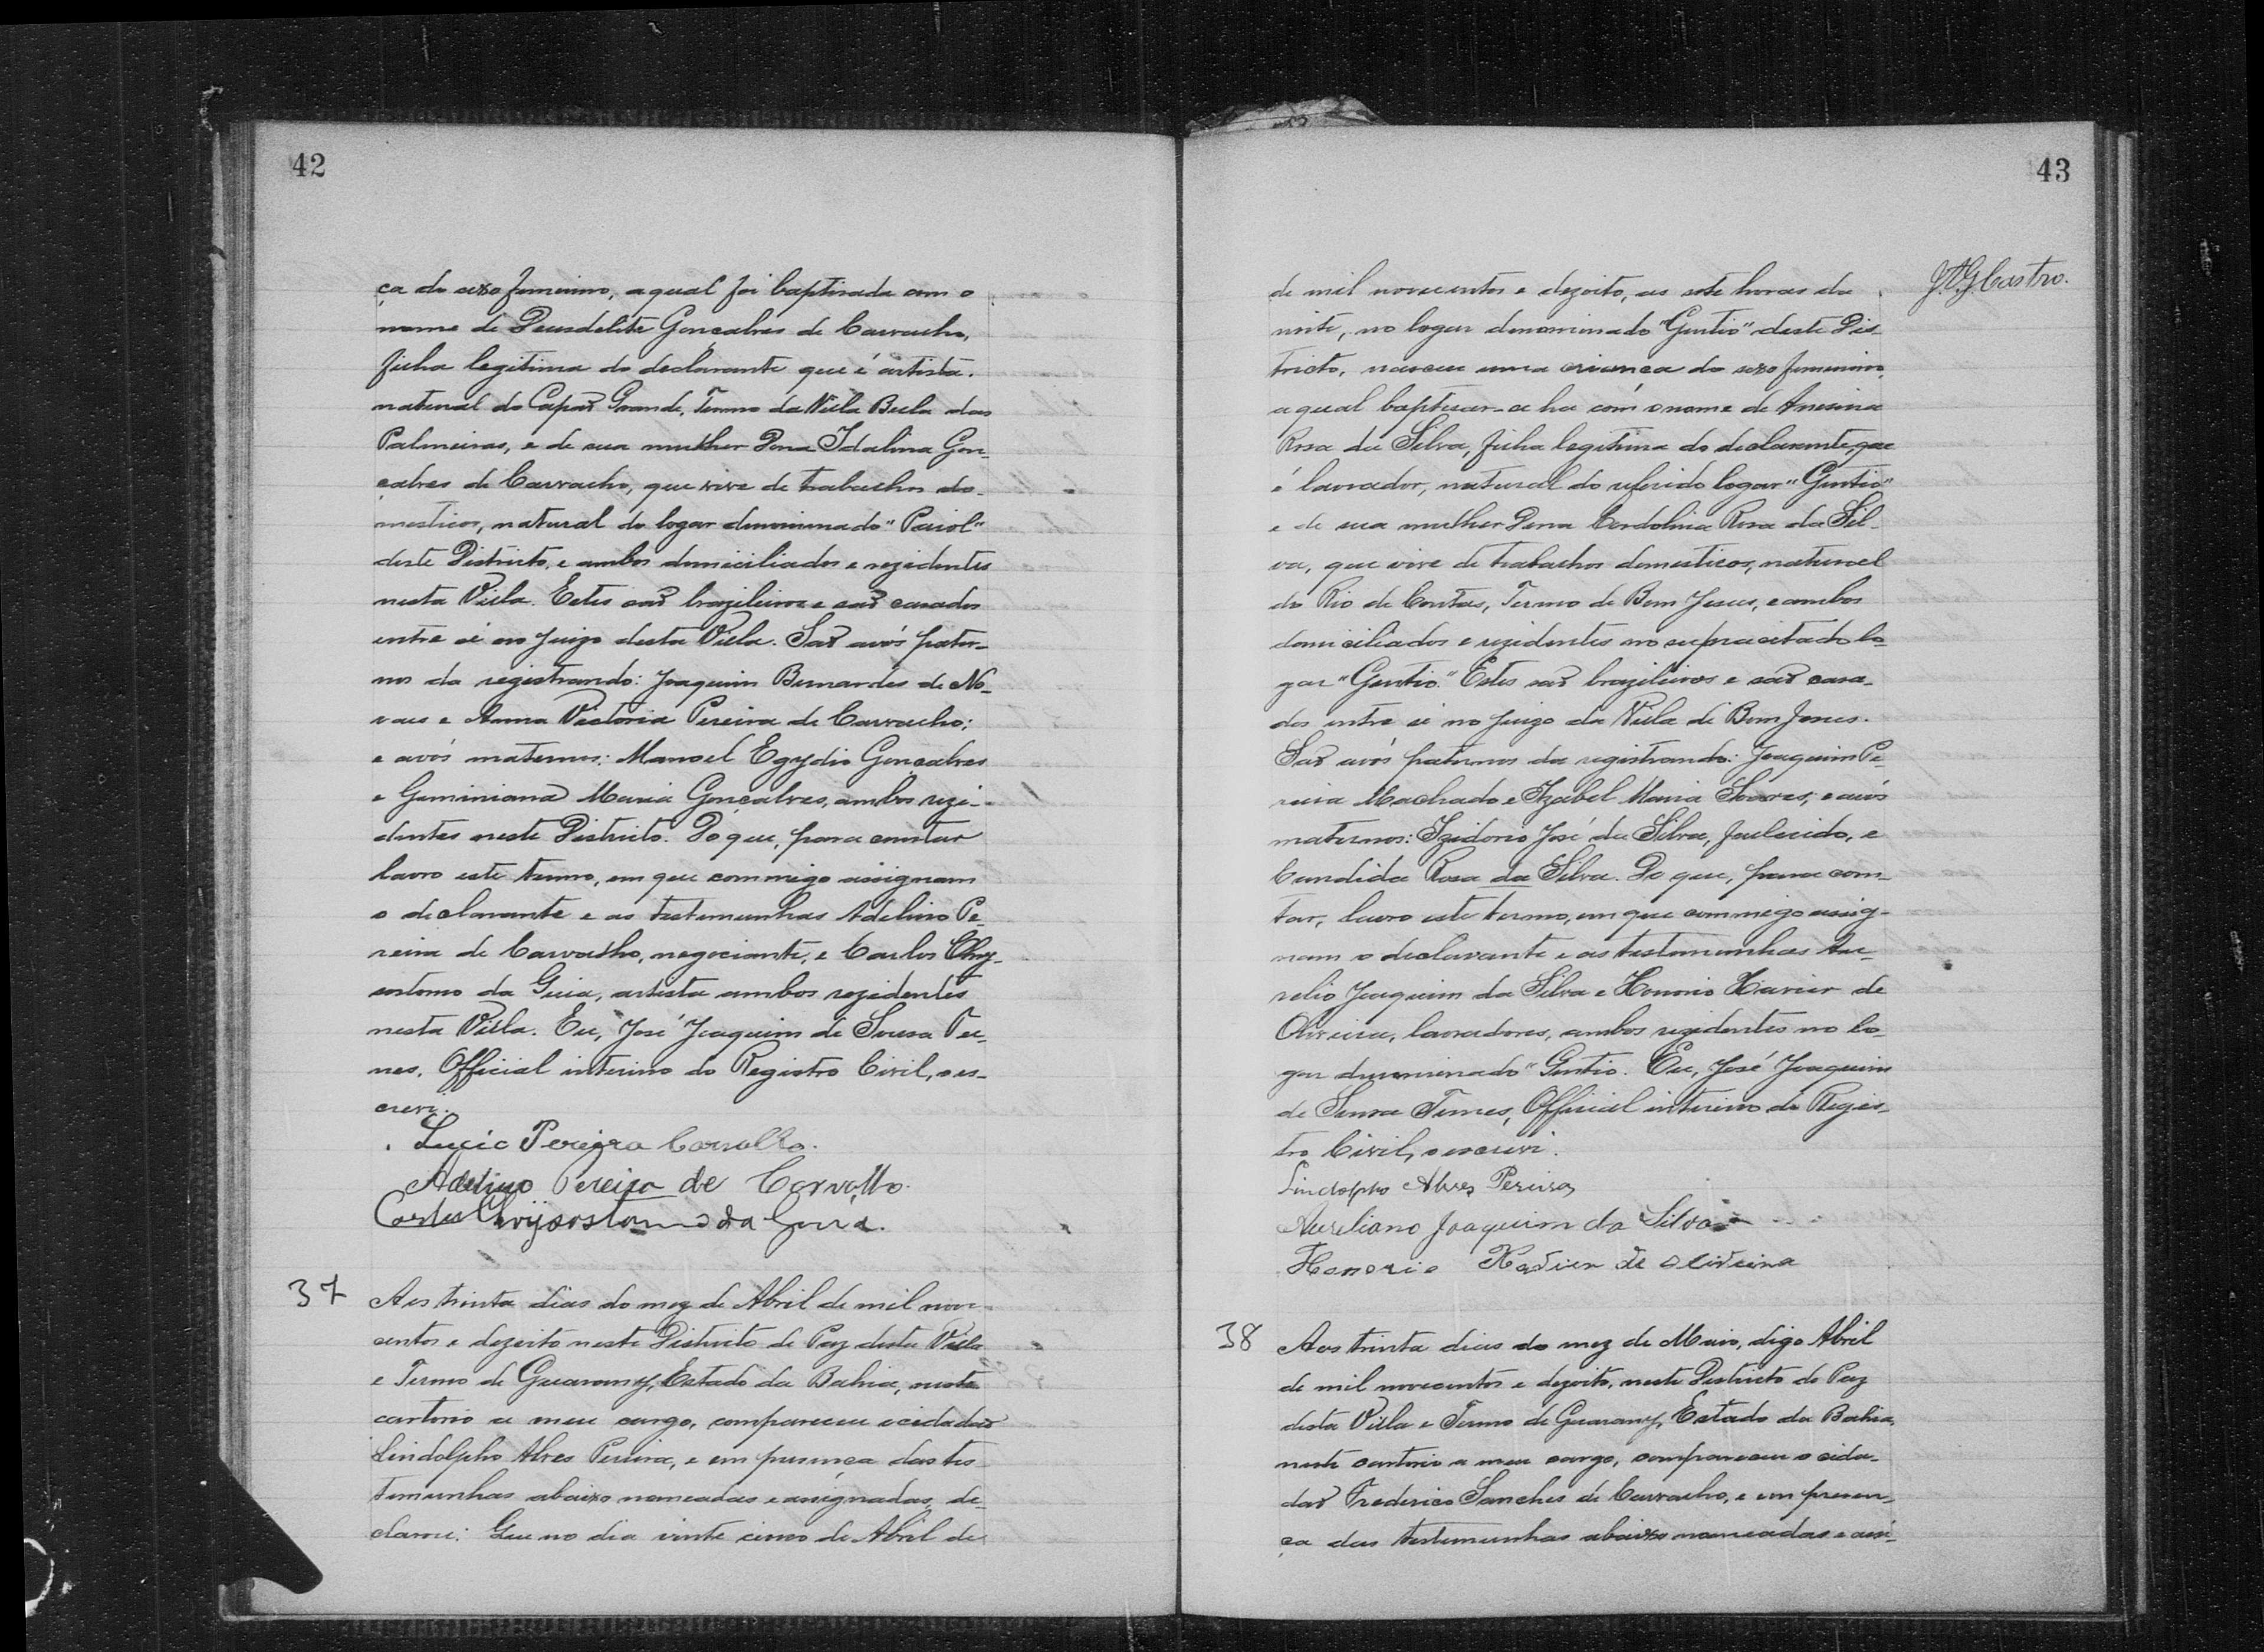 42
ça do sexo feminino, a qual foi baptisada com o
nome de Deusdelite Gonçalves de Carvalho,
filha legitima do declarante que é artista,
natural do Capão Grande, Termo da Villa Bella das
Palmeiras, e de sua mulher Dona Idalina Gon-
çalves de Carvalho, que vive de trabalhos do-
mesticos, natural do logar denominado "Paiol"
deste Districto, e ambos domiciliados e rezidentes
nesta Villa. Estes são brazileiros e são casados
entre si no juizo desta Villa. São avós pater-
nos da registrando: Joaquim Bernardes de No-
vaes e Anna Victoria Pereira de Carvalho;
e avós maternos: Manoel Egydio Gonçalves
e Geminiana Maria Gonçalves, ambos rezi-
dentes neste Districto. Do que, para constar
lavro este termo, em que commigo assignam
o declarante e as testemunhas Adelino Pe-
reira de Carvalho, negociante, e Carlos Chry-
sostomo da Guia, artista ambos rezidentes
nesta Villa. Eu, José Joaquim de Sousa
nes, Official interino do Registro Civil, o es-
crevi.
Lucio Pereira Carvalho.
Adelino Pereira de Carvalho.
Carlos Chrysostomo da Guia.
37
Aos trinta dias do mez de Abril de mil nove-
centos e dezoito neste Districto de Paz desta Villa
e Termo de Guarany, Estado da Bahia, neste
cartorio a meu cargo, compareceu o cidadão
Lindolpho Alves Pereira, e em presença das tes-
temunhas abaixo nomeadas e assignadas, de-
clarou: Que no dia vinte cinco de Abril de
43
J.A.G. Castro.
de mil novecentos e dezoito, as sete horas da
noite, no logar denominado "Gentio" deste Dis-
tricto, nasceu uma criança do sexo feminino,
a qual baptisar-se ha com o nome de Anesina
Rosa da Silva, filha legitima do declarante, que
é lavrador, natural do referido logar "Gentio"
e de sua mulher Dona Cordolina Rosa da Sil-
va, que vive de trabalhos domesticos, natural
do Rio de Contas, Termo de Bom Jesus, e ambos
domiciliados e rezidentes no supracitado lo-
gar "Gentio." Estes são brazileiros e são casa-
dos entre si no juizo da Villa de Bom Jesus.
São avós paternos da registrando: Joaquim Pe-
reira Machado e Izabel Maria Soares, e avós
maternos: Izidorio José da Silva, fallecido, e
Candida Rosa da Silva. Do que, para cons-
tar, lavro este termo, em que commigo assig-
nam o declarante e as testemunhas Au-
relio Joaquim da Silva e Honorio Xavier de
Oliveira, lavradores, ambos rezidentes no lo-
gar denominado "Gentio. Eu, José Joaquim
de Sousa Official interino do Regis-
tro Civil, o escrevi.
Lindolpho Alves Pereira
Aureliano Joaquim da Silva
Honorio Xavier de Oliveira
38
Aos trinta dias do mez de Maio, digo Abril
de mil novecentos e dezoito, neste Districto de Paz
desta Villa e Termo de Guarany, Estado da Bahia,
neste cartorio a meu cargo, compareceu o cida-
dão Frederico Sanches de Carvalho, e em presen-
ça das testemunhas abaixo nomeadas e assi-